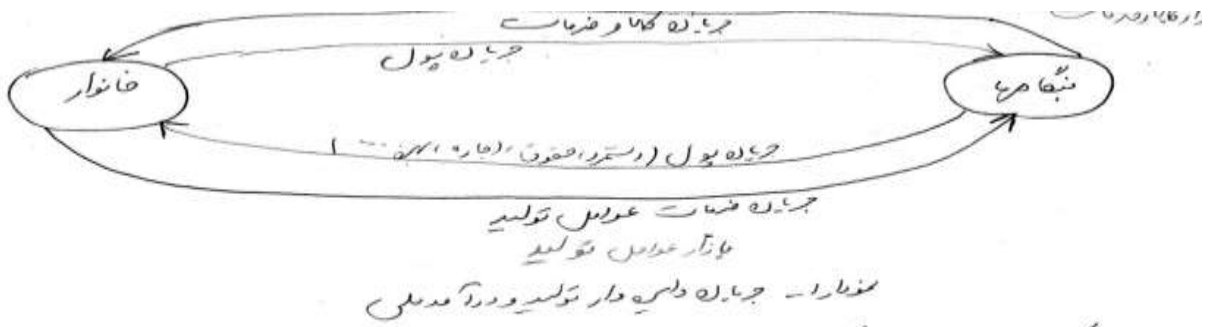 بازار کالا و خدمات
جریان کالا و خدمات
جریان پول
خانوار
بنگاهها
جریان پول (دستمزد، حقوق، اجاره، بهره ...)
جریان خدمات عوامل تولید
بازار عوامل تولید
نمودار ۱- جریان دایره وار تولید و درآمد ملی